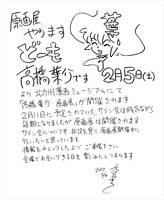 原画展
やります
どーも
高橋葉介です
2月5日(土)
より 北九州漫画ミュージアムにて
「高橋葉介 原画展」が開催されます
2月11日に予定されていたサイン会は残念ながら
延期となりましたが 原画展は開催されます
サイン会についても 状況を見て 原画展開催中に
行いたいと思っています
情報をチェックした上で ご来場下さい
会場でお会いできる日を 楽しみにしております
2022